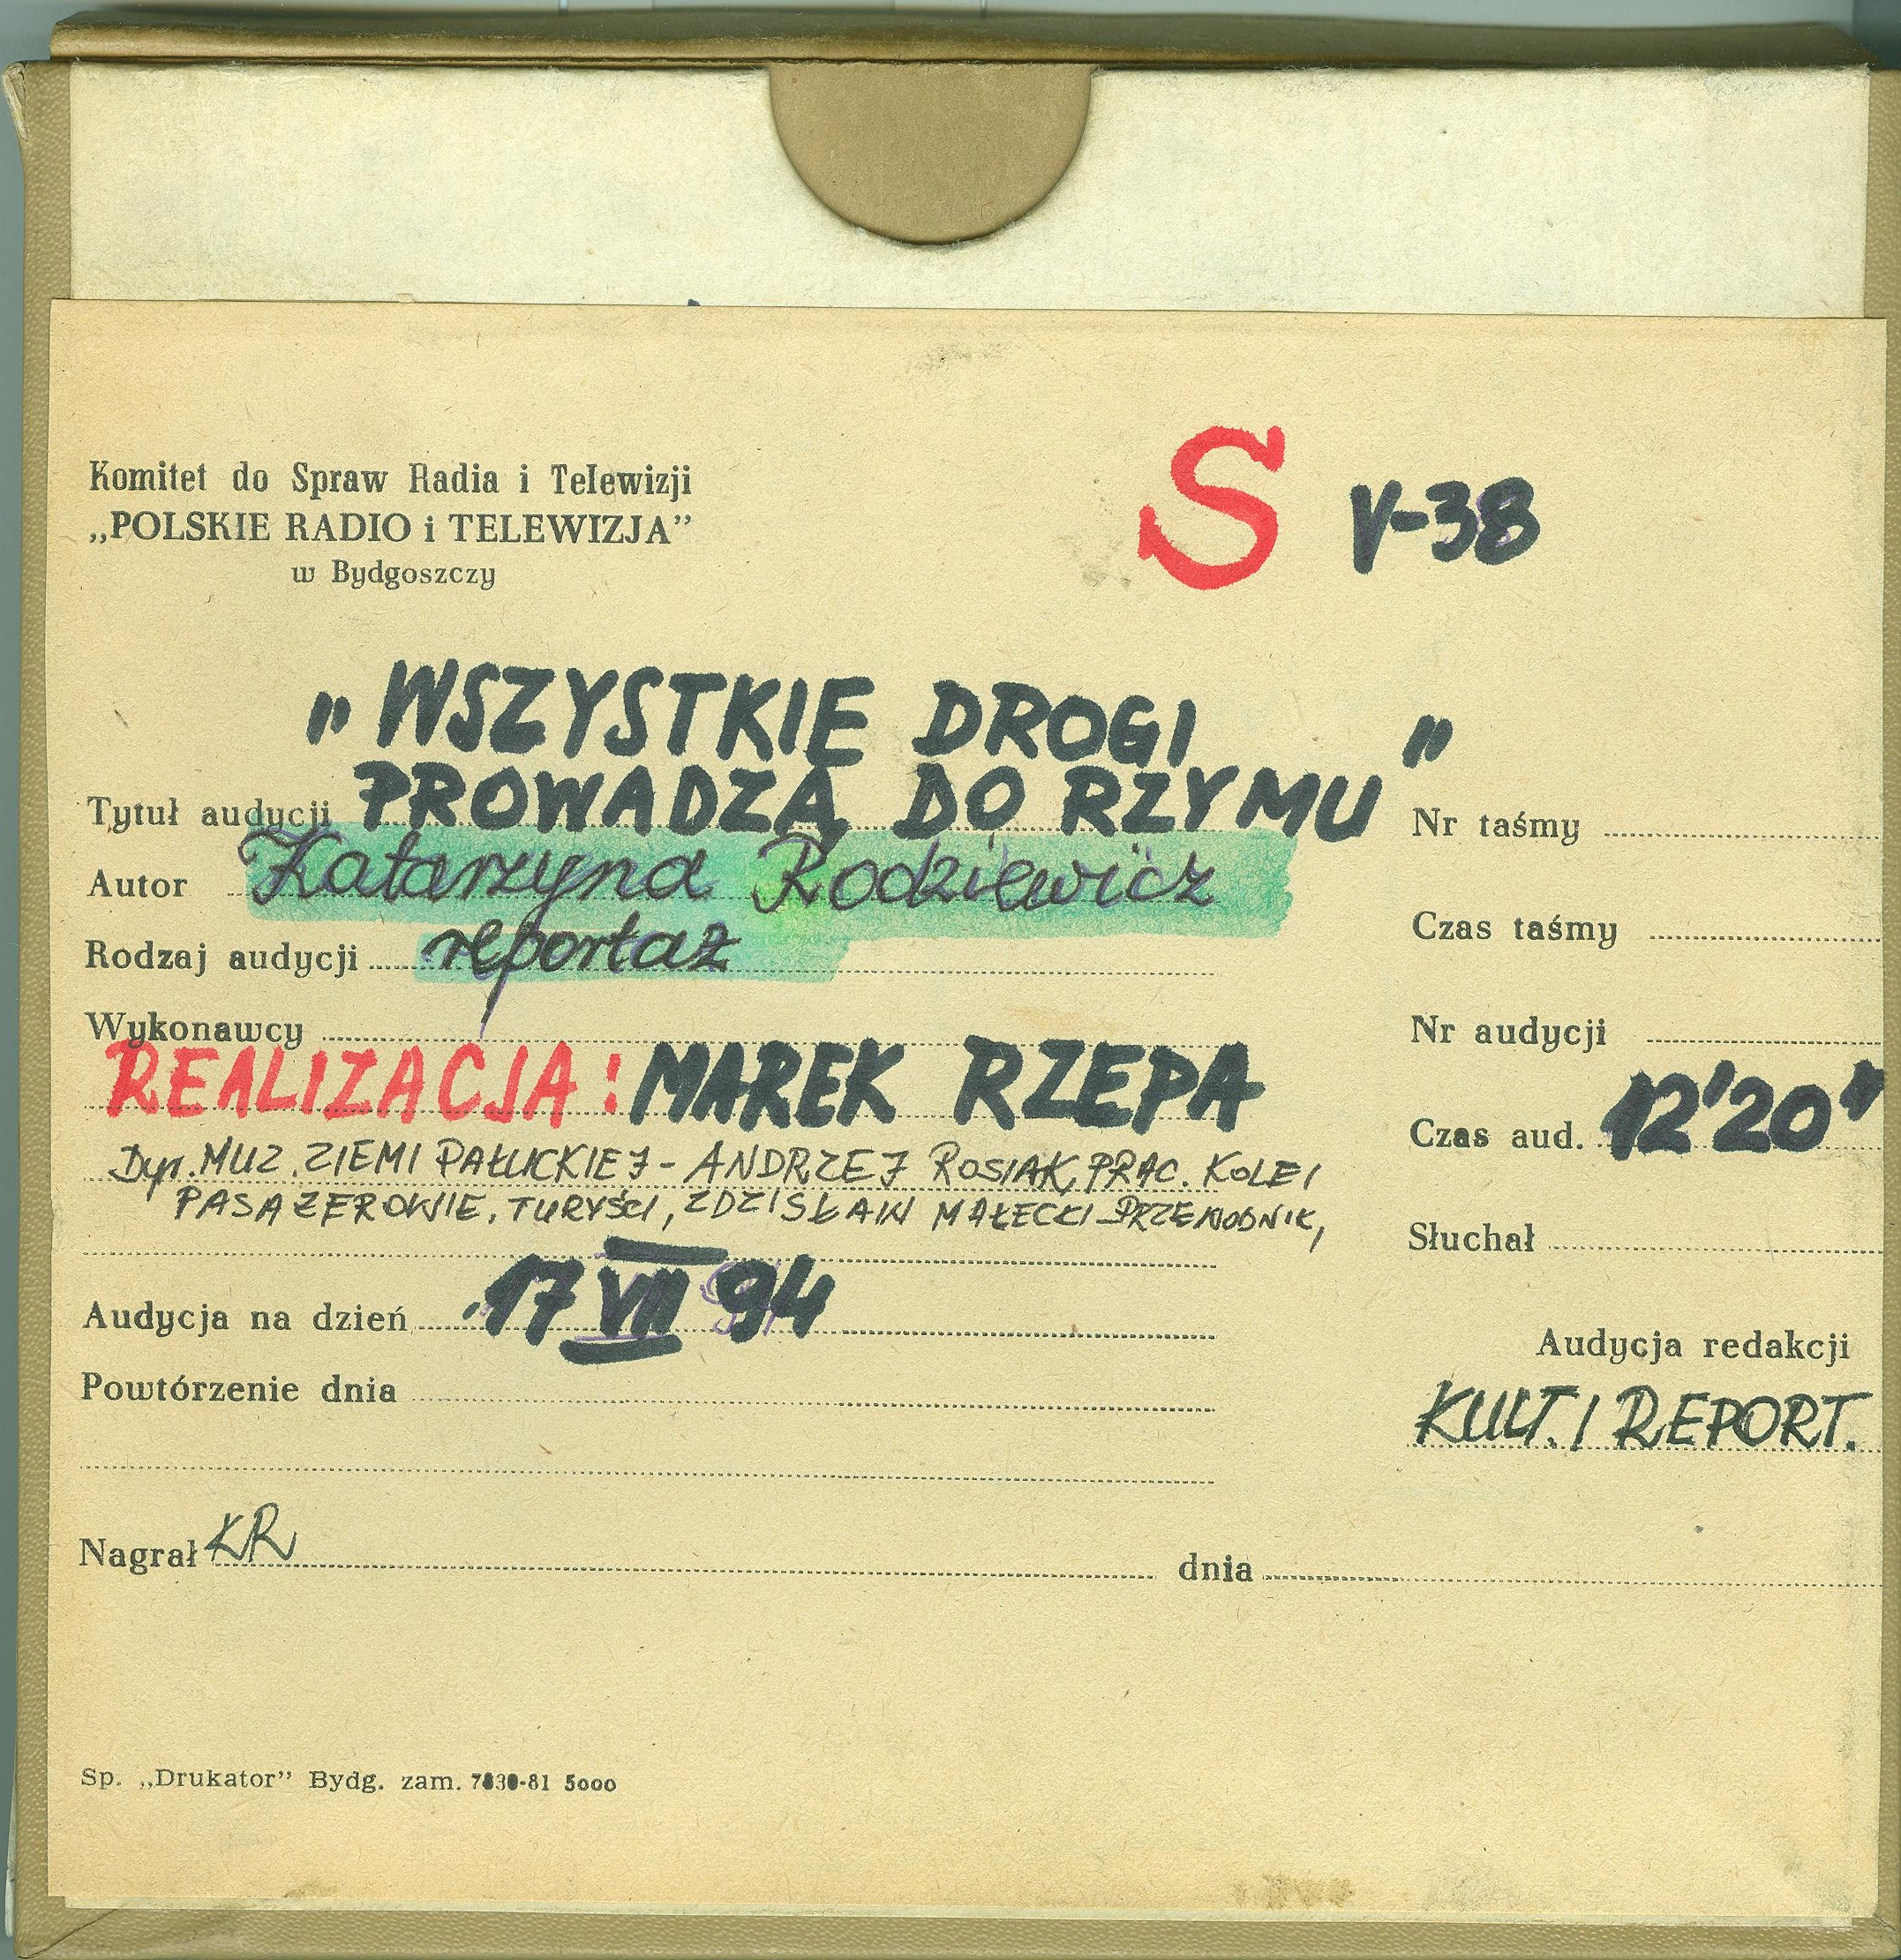 Komitet do Spraw Radia i Telewizji
„POLSKIE RADIO i TELEWIZJA”
w Bydgoszczy
S V-38
„WSZYSTKIE DROGI
Tytuł audycji PROWADZĄ DO RZYMU”
Nr taśmy
Autor Katarzyna Rodziewicz
Czas taśmy
Rodzaj audycji reportaż
Wykonawcy
Nr audycji
REALIZACJA: MAREK RZEPA
Czas aud. 12'20"
Dyr. MUZ. ZIEMI PAŁUCKIEJ - ANDRZEJ ROSIAK, PRAC. KOLEI
PASAŻEROWIE, TURYŚCI, ZDZISŁAW MAŁECKI - PRZEWODNIK,
Słuchał
Audycja na dzień 17 VII 94
Audycja redakcji
Powtórzenie dnia
KULT. I REPORT.
Nagrał KR dnia
Sp. „Drukator” Bydg. zam. 7830-81 5000